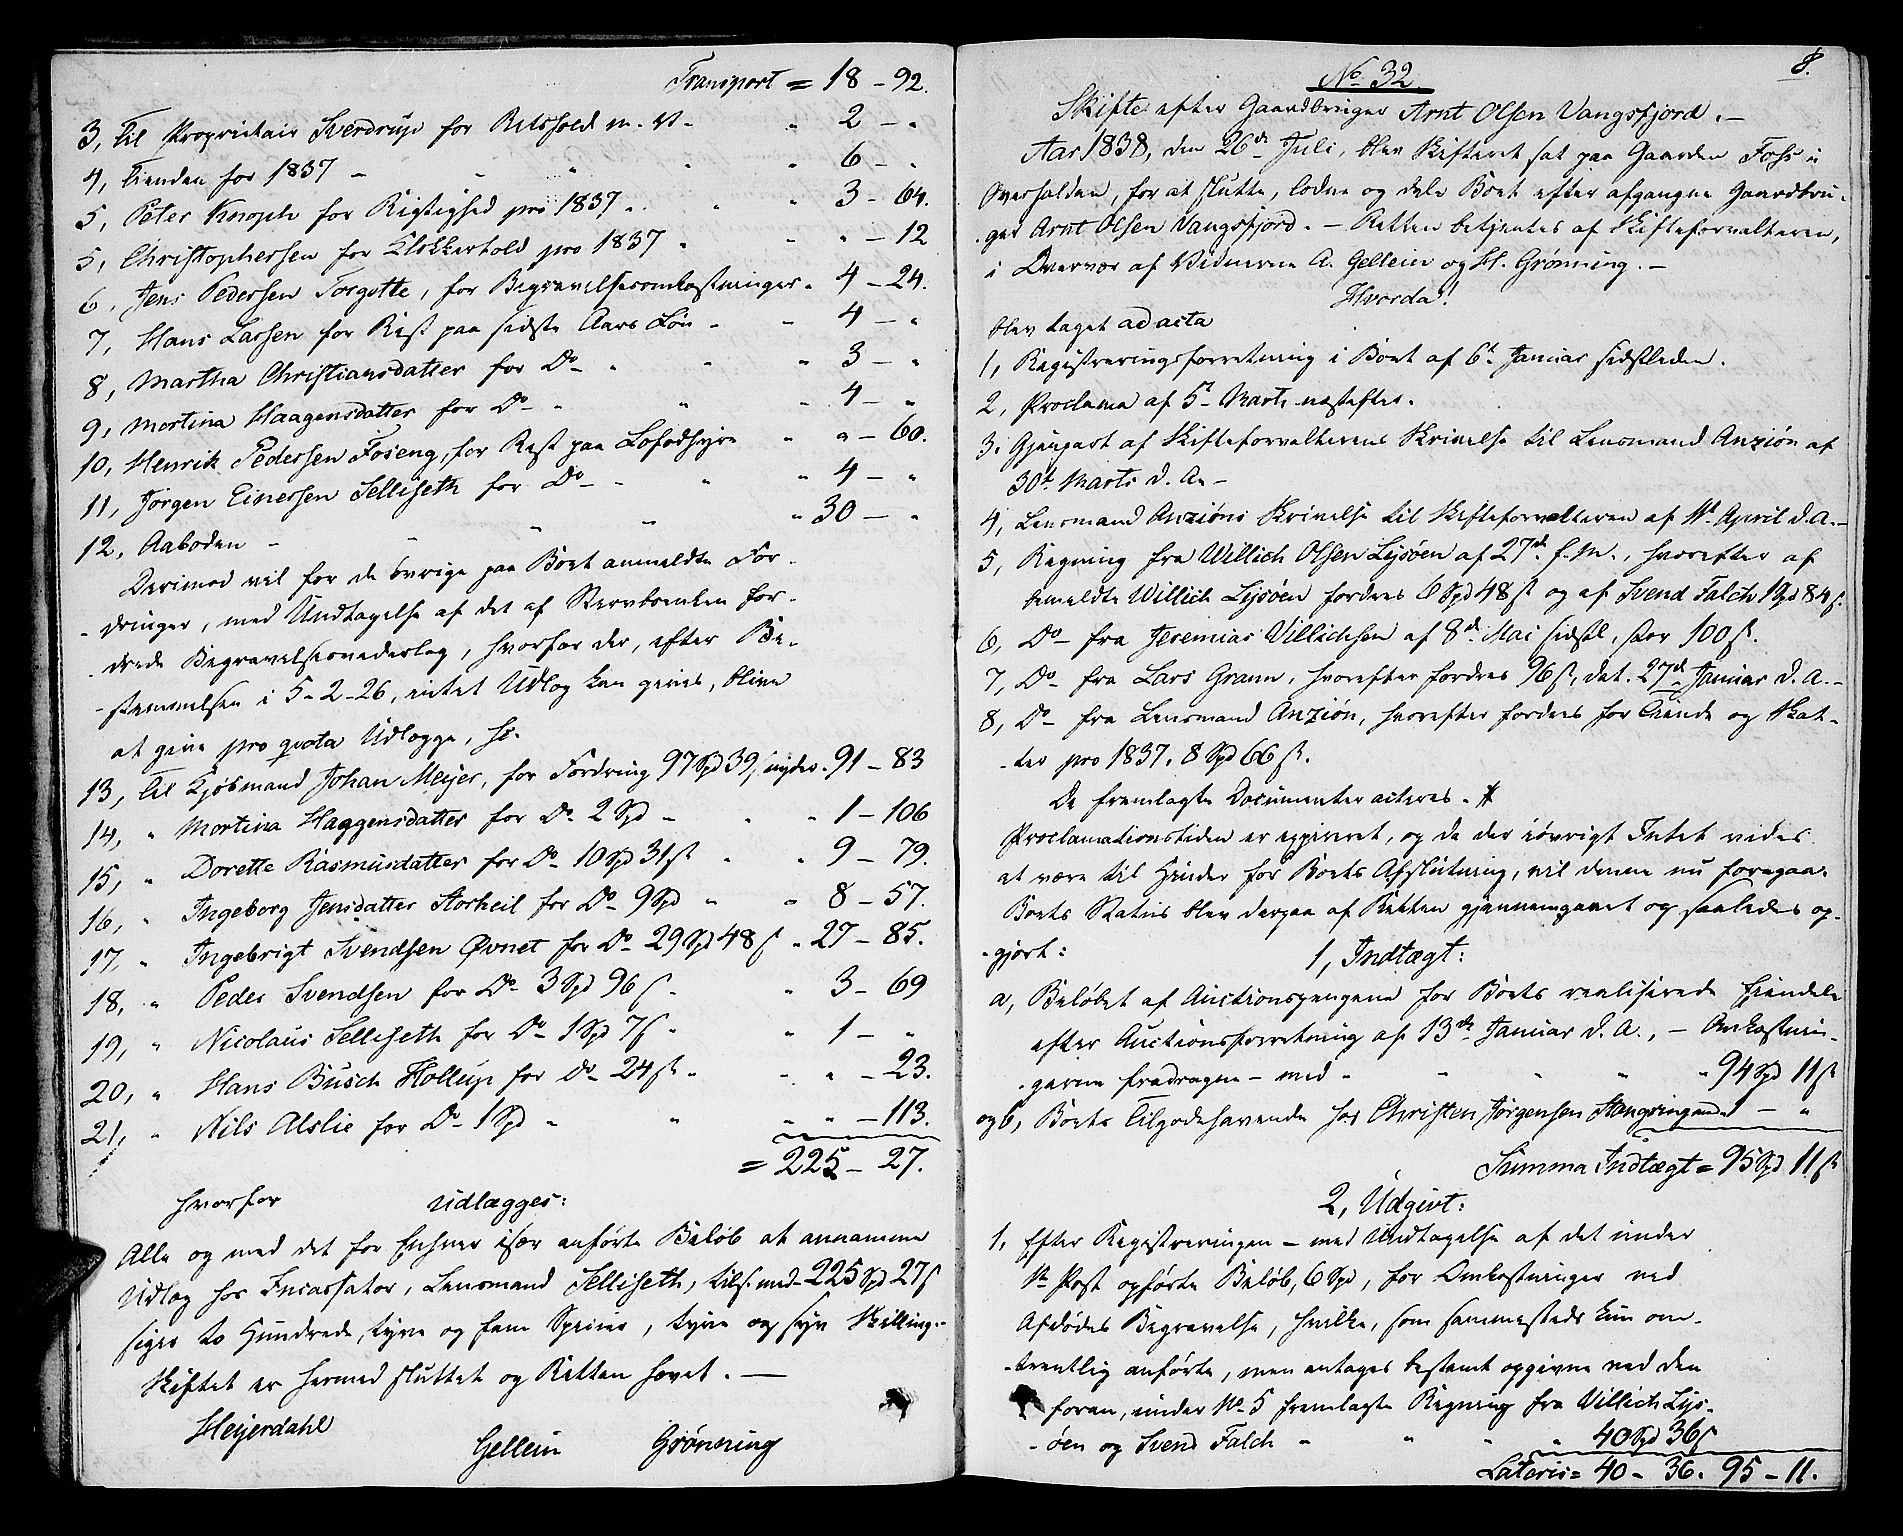 Transport = 18 - 92.
3, Til Proprietair Sverdrup for Retshold m. V. " 2 - "
4, Tienden for 1837 - " " 6 - "
5, Peter Knoph for Rigtighed pro 1837 " " 3 - 64.
5, Christophersen for Klokkertold pro 1837 " " - 12
6, Jens Pedersen Torgotte, for Begravelsesomkostninger " 4 - 24.
7, Hans Larsen for Rest paa sidste Aars Løn - " 4 - "
8, Martha Christiansdatter for Do - " " 3 - "
9, Mortina Haagensdatter for Do - " " 4 - "
10, Henrik Pedersen Foseng, for Rest paa Lofodhyre " " - 60.
11, Jørgen Einersen Selliseth for Do - " " 4 - "
12, Aaboden - " " " 30 - "
Derimod vil for de øvrige paa Boet anmeldte For-
-dringer, med Undtagelse af det af Stervboenken for-
-drede Begravelsesvederlag, hvorfor der, efter Be-
-stemmelsen i 5-2-26, intet Udlæg kan gives, blive
at give pro qvota Udlægge, sc.
13, Til Kjøbmand Johan Meyer, for Fordring 97 Spd 39, nydes . 91 - 83
14, " Mortina Haggensdatter for Do 2 Spd - " " 1 - 106
15, " Dorette Rasmusdatter for Do 10 Spd 31 ß " " 9 - 79.
16, " Ingeborg Jensdatter Storheil for Do 9 Spd " " 8 - 57.
17, " Ingebrigt Svendsen Øvnet for Do 29 Spd 48 ß " 27 - 85.
18, " Peder Svendsen for Do 3 Spd 96 ß " " 3 - 69
19, " Nicolaus Selliseth for Do 1 Spd 7 ß " " 1 - "
20, " Hans Busch Hollup for Do 24 ß " " " - 23.
21, " Nils Alslie for Do 1 Spd " " " - 113.
= 225 - 27.
hvorfor udlægges:
Alle og med det for Enhver især anførte Beløb at annamme
Udlæg hos Incassator, Lensmand Selliseth, tils. med 225 Spd 27 ß
siger to Hundrede, tyve og fem Species, tyve og syv Skilling.-
Skiftet er hermed sluttet og Retten hævet. —
Heyerdahl
Gellein Grønning
8.
No 32.
Skifte efter Gaardbruger Arnt Olsen Vangsfjord. -
Aar 1838, den 26de Juli, blev Skifteret sat paa Gaarden Foss i
Overhalden, for at slutte, lodne og dele Boet efter afgangne Gaardbru-
-ger Arnt Olsen Vangsfjord. - Retten betjentes af Skifteforvalteren,
i Overvær af Vidnerne A. Gellein og H. Grønning. -
Hvorda!
blev taget ad acta
1, Registreringsforretning i Boet af 6t Januar sidstleden.
2, Proclama af 5t Marts næstefter.
3. Gjenpart af Skifteforvalterens Skrivelse til Lensmand Anzion af
30t Marts d. A. -
4, Lensmand Anzions Skrivelse til Skifteforvalteren af 11t April d. A. -
5, Regning fra Willich Olsen Lysøen af 27de f. M., hvorefter af
bemeldte Willich Lysøen fordres 6 Spd 48 ß og af Svend Falch 1 Spd 84 ß.
6, Do - fra Jeremias Villichsen af 8de Mai sidstl., stor 100 ß.
7, Do - fra Lars Grann, hvorefter fordres 96 ß, dat. 27de Januar d. A. -
8, Do - fra Lensmand Anzion, hvorefter fordres for Tiende og Skat-
-ter pro 1837. 8 Spd 66 ß.
De fremlagte Documenter acteres.
Proclamationstiden er expireret, og da der iøvrigt Intet vides
at være til Hinder for Boets Afslutning, vil denne nu foregaa.
Boets Status blev derpaa af Retten gjennemgaaet og saaledes op-
-gjort: 1, Indtægt:
a, Beløbet af Auctionspengene for Boets realiserede Eiendele
efter Auctionsforretning af 13de Januar d. A., - Omkostnin-
-gerne fradragne - med " " " " 94 Spd 11 ß
og b, Boets Tilgodehavende hos Christen Jørgensen Stangsringan 1 - "
Summa Indtægt = 95 Spd 11 ß
2, Udgivt:
1, Efter Registreringen - med Undtagelse af det under
1te Post opførte Beløb, 6 Spd, for Omkostninger ved
Afdødes Begravelse, hvilke, som sammesteds kun om-
-trentlig anførte, men antages bestemt opgivne ved den
foran, under No 5 fremlagte Regning fra Willich Lys-
-øen og Svend Falch " " " 40 Spd 36 ß
Lateris = 40 - 36. 95 - 11.